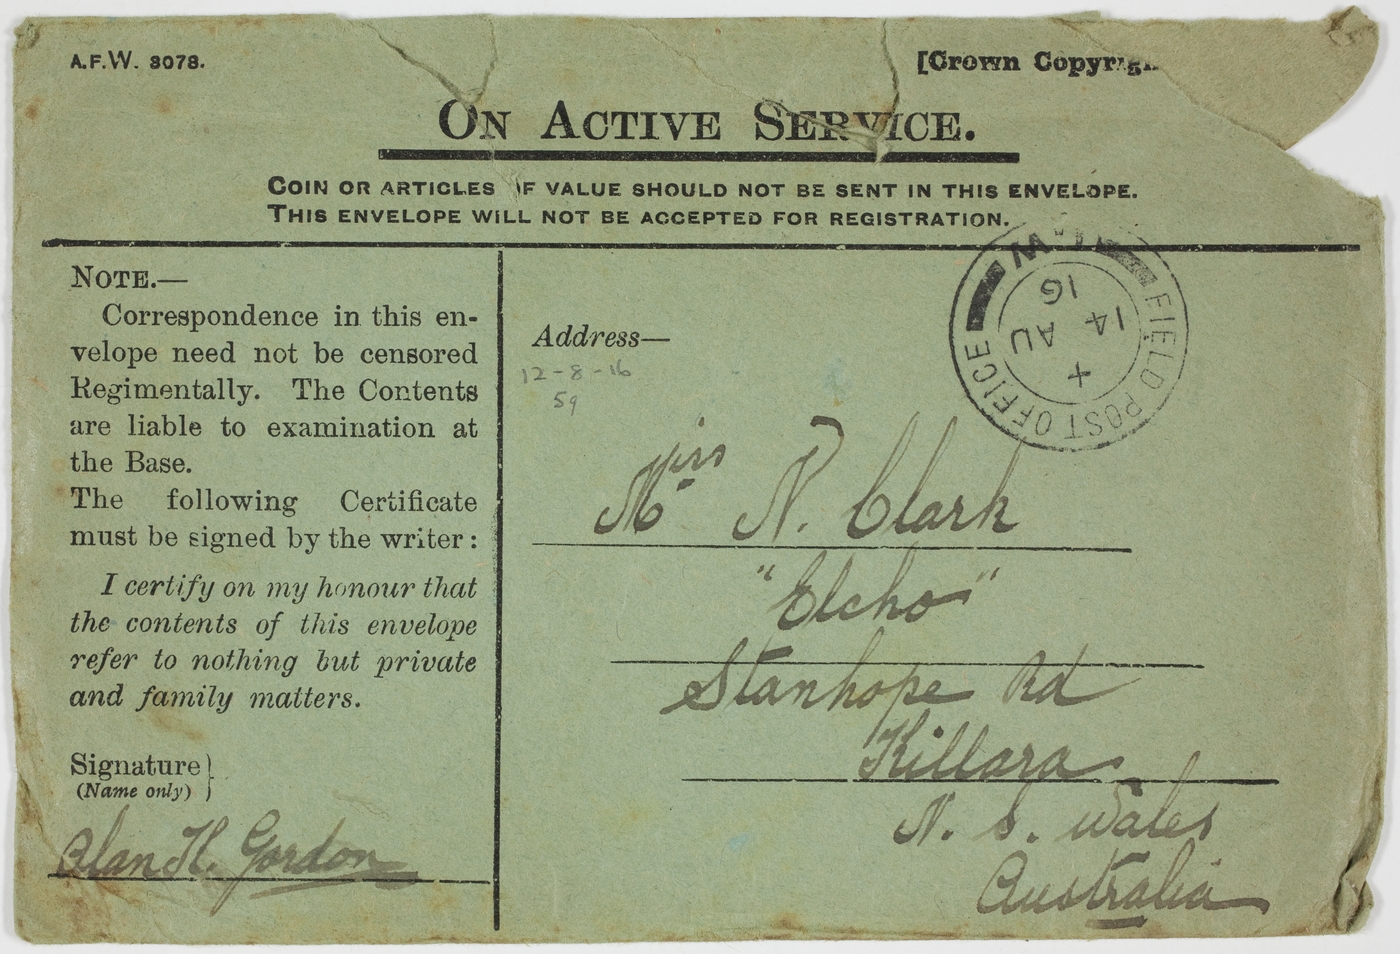 A.F.W. 3078.
[Crown Copyrig
ON ACTIVE SERVICE.
COIN OR ARTICLES OF VALUE SHOULD NOT BE SENT IN THIS ENVELOPE.
THIS ENVELOPE WILL NOT BE ACCEPTED FOR REGISTRATION.
NOTE.—
Correspondence in this en-
velope need not be censored
Regimentally. The Contents
are liable to examination at
the Base.
The following Certificate
must be signed by the writer:
I certify on my honour that
the contents of this envelope
refer to nothing but private
and family matters.
Signature
(Name only)
Alan H. Gordon
FIELD POST OFFICE
14 AU
16
Address—
12-8-16
59
Miss N. Clark
"Elcho"
Stanhope Rd
Killara
N. S. Wales
Australia